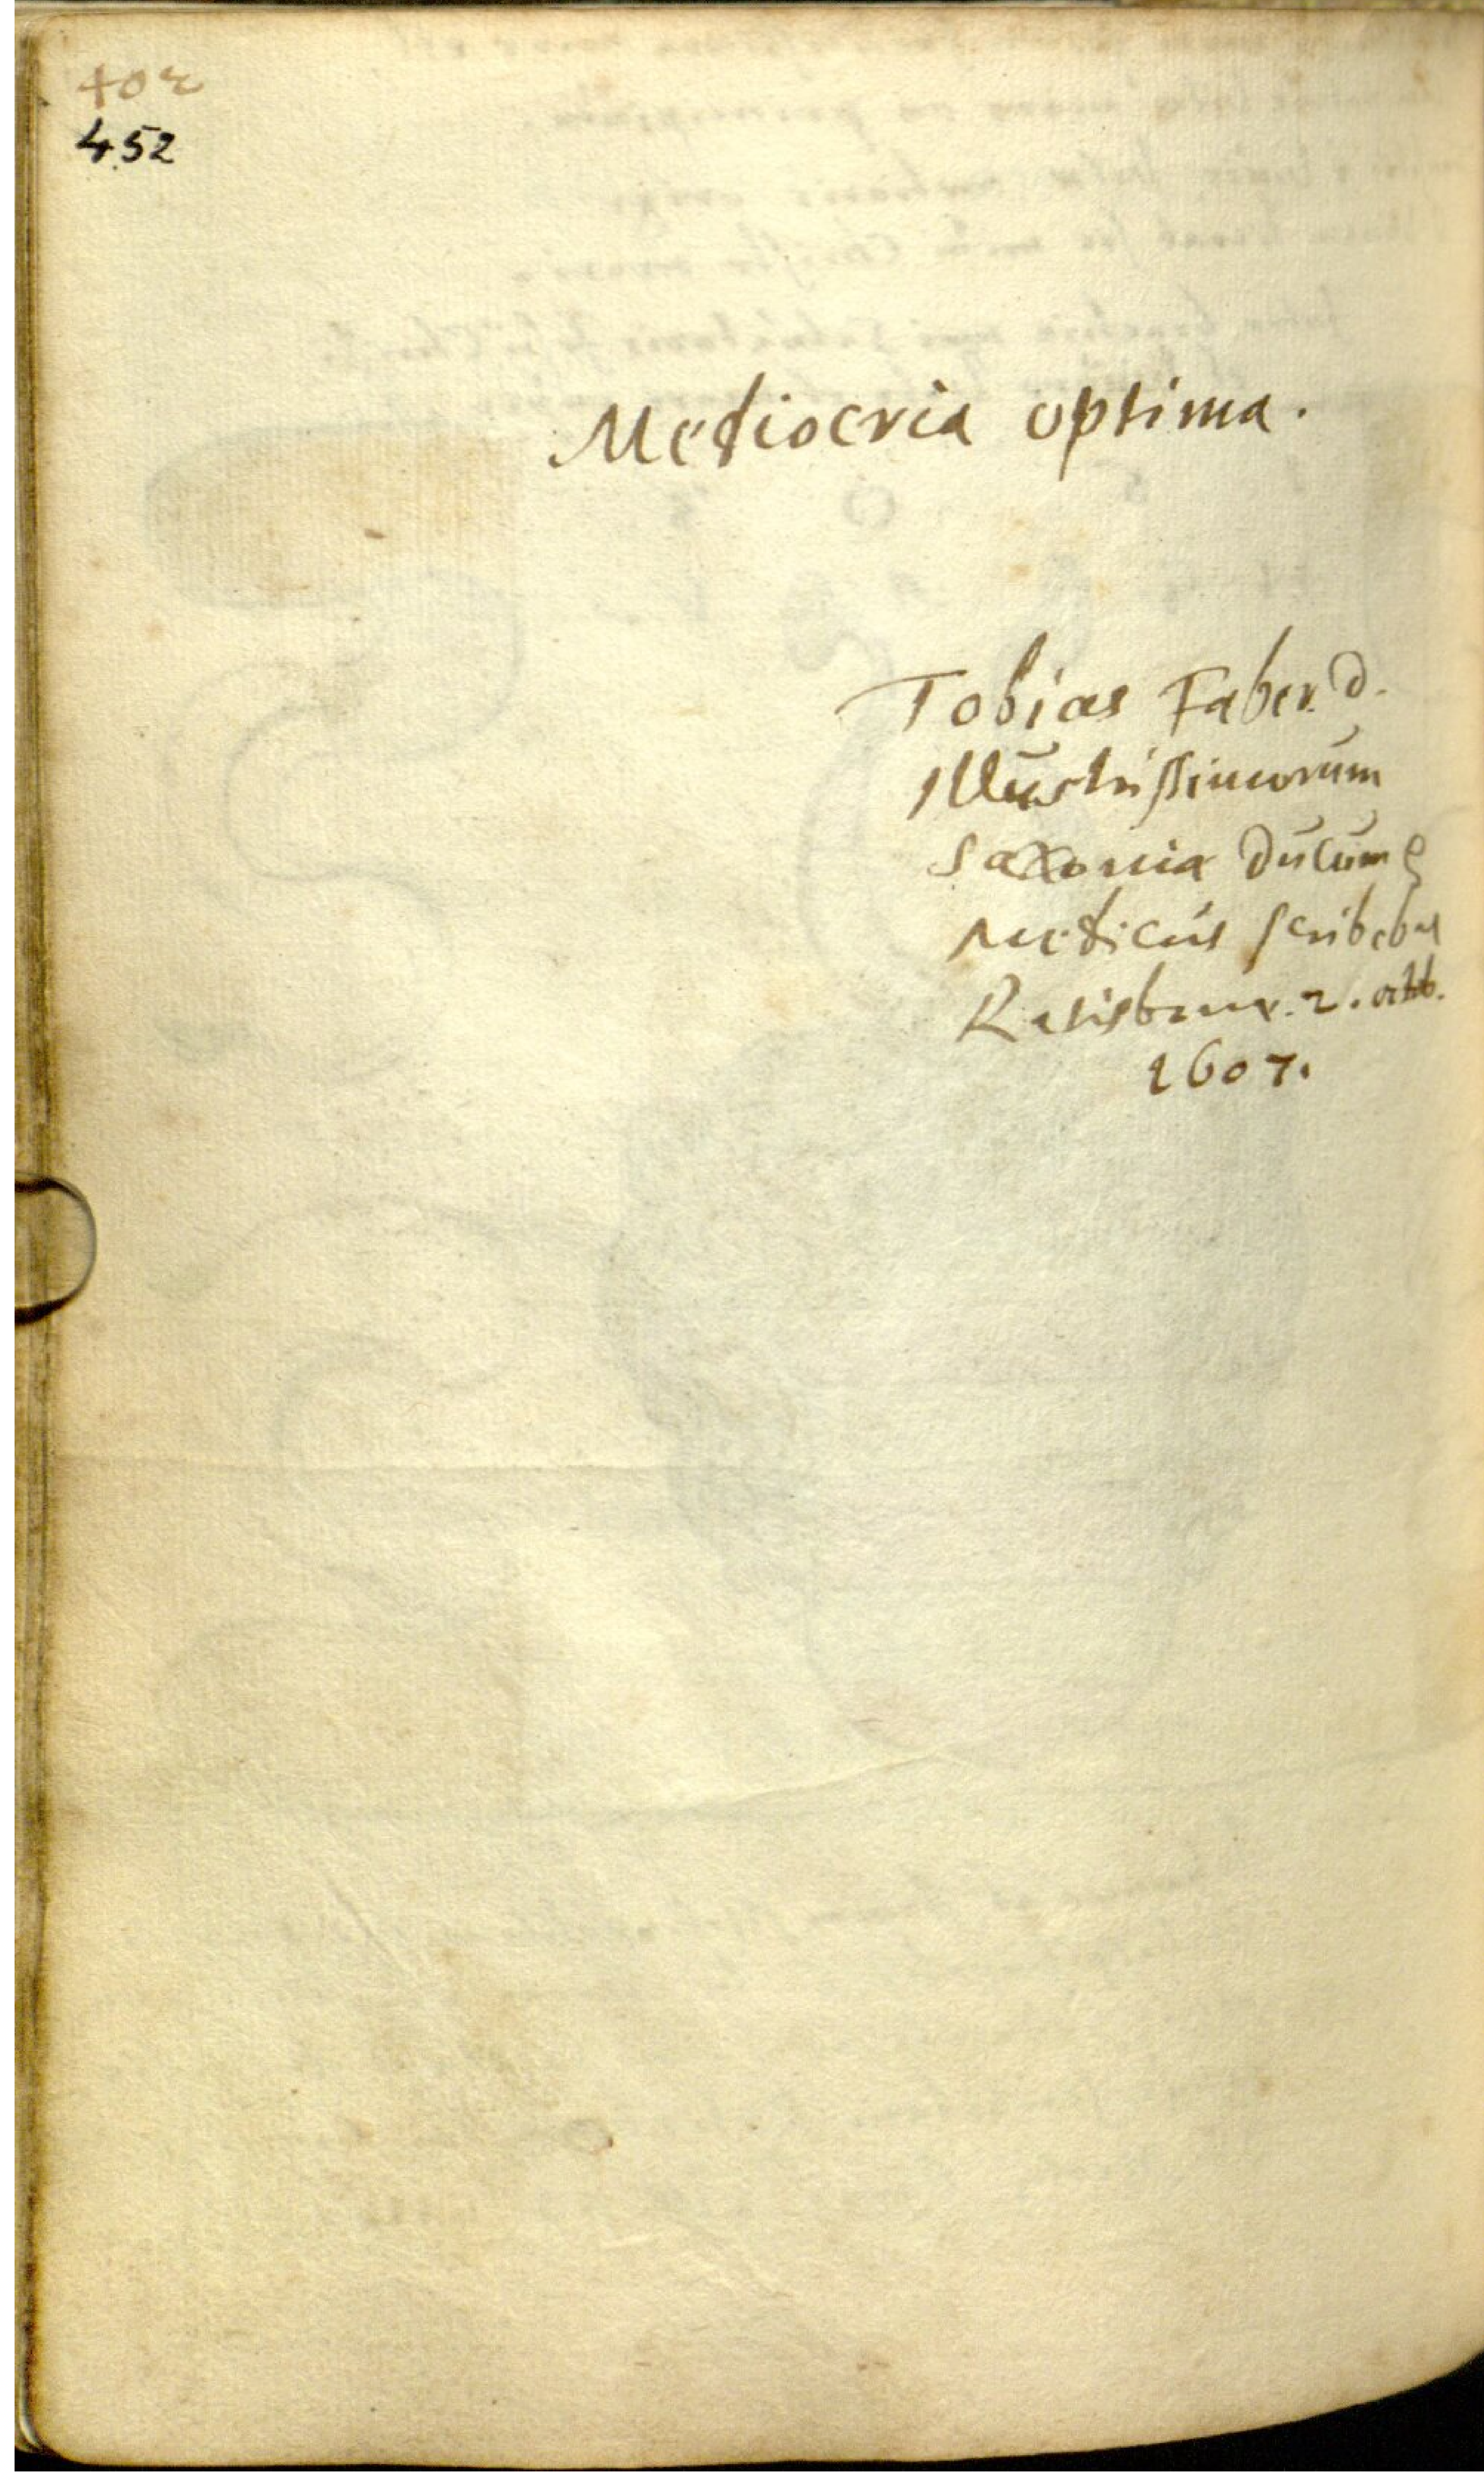 402
452
Mediocria optima.
Tobias Faber. D.
Illustrissimorum
Saxonia Ducum
Medicus scribebat
Ratisbonæ. 2. octob.
1607.